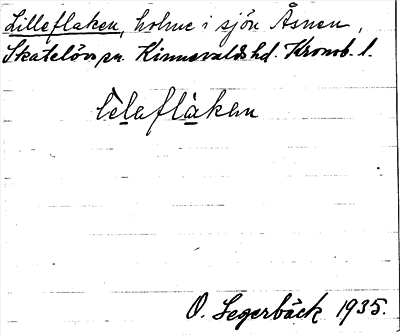 Lilleflaken, holme i sjön Åsnen,
Skatelövs sn. Kinnevalds hd. Kronob. l.
lelaflakan
O. Segerbäck 1935.